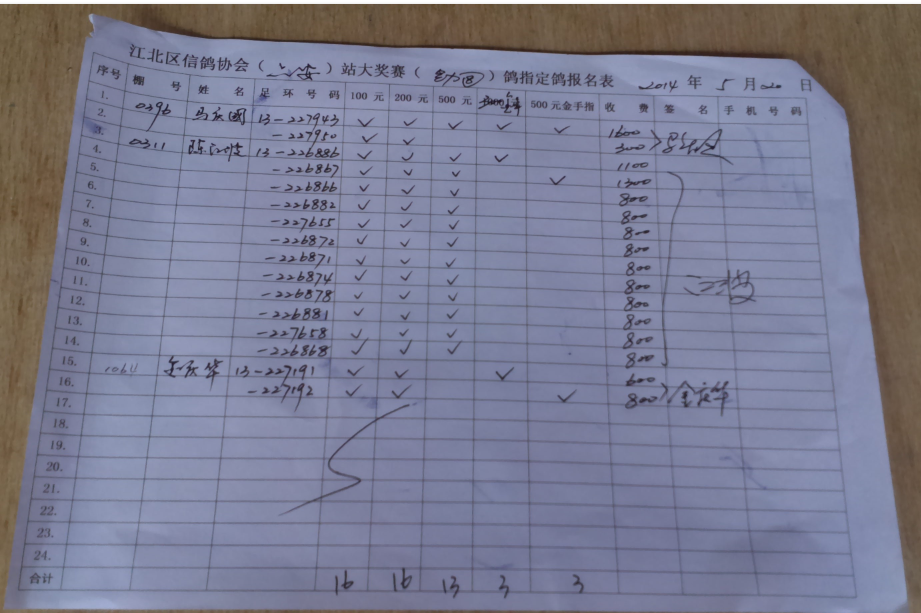 江北区信鸽协会（六安）站大奖赛（ ）鸽指定鸽报名表 2014 年 5 月 20 日
序号 棚 号 姓 名 足 环 号 码 100 元 200 元 500 元 500元金手指 收 费 签 名 手 机 号 码
1. 0396 马庆国 13-227943 ✓ ✓ ✓ ✓ ✓ 1600
2. -227950 ✓ ✓ 300
3. 0311 陈江波 13-226886 ✓ ✓ ✓ ✓ 1100
4. -226867 ✓ ✓ ✓ ✓ 1300
5. -226866 ✓ ✓ ✓ 800
6. -226882 ✓ ✓ ✓ 800
7. -227655 ✓ ✓ ✓ 800
8. -226872 ✓ ✓ ✓ 800
9. -226871 ✓ ✓ ✓ 800
10. -226874 ✓ ✓ ✓ 800
11. -226878 ✓ ✓ ✓ 800 江波
12. -226881 ✓ ✓ ✓ 800
13. -227658 ✓ ✓ ✓ 800
14. -226868 ✓ ✓ ✓ 800
15. 金庆华 13-227191 ✓ ✓ ✓ 600
16. -227192 ✓ ✓ ✓ 800 金庆华
17.
18.
19.
20.
21.
22.
23.
24.
合计 16 16 13 3 3